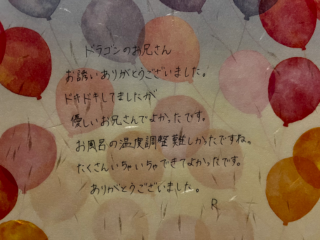 ドラゴンのお兄さん
お誘いありがとうございました。
ドキドキしてましたが
優しいお兄さんでよかったです。
お風呂の温度調整難しかったですね。
たくさんいちゃいちゃできてよかったです。
ありがとうございました。
R